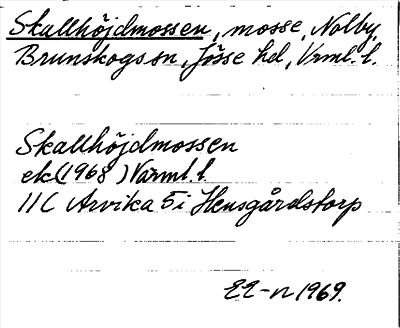 Skallhöjdmossen, mosse, Nolby,
Brunskogs sn, Jösse hd, Vrml. l.
Skallhöjdmossen
ek (1968) Varml. l.
11C Arvika 5i Hensgårdstorp
EE-n 1969.